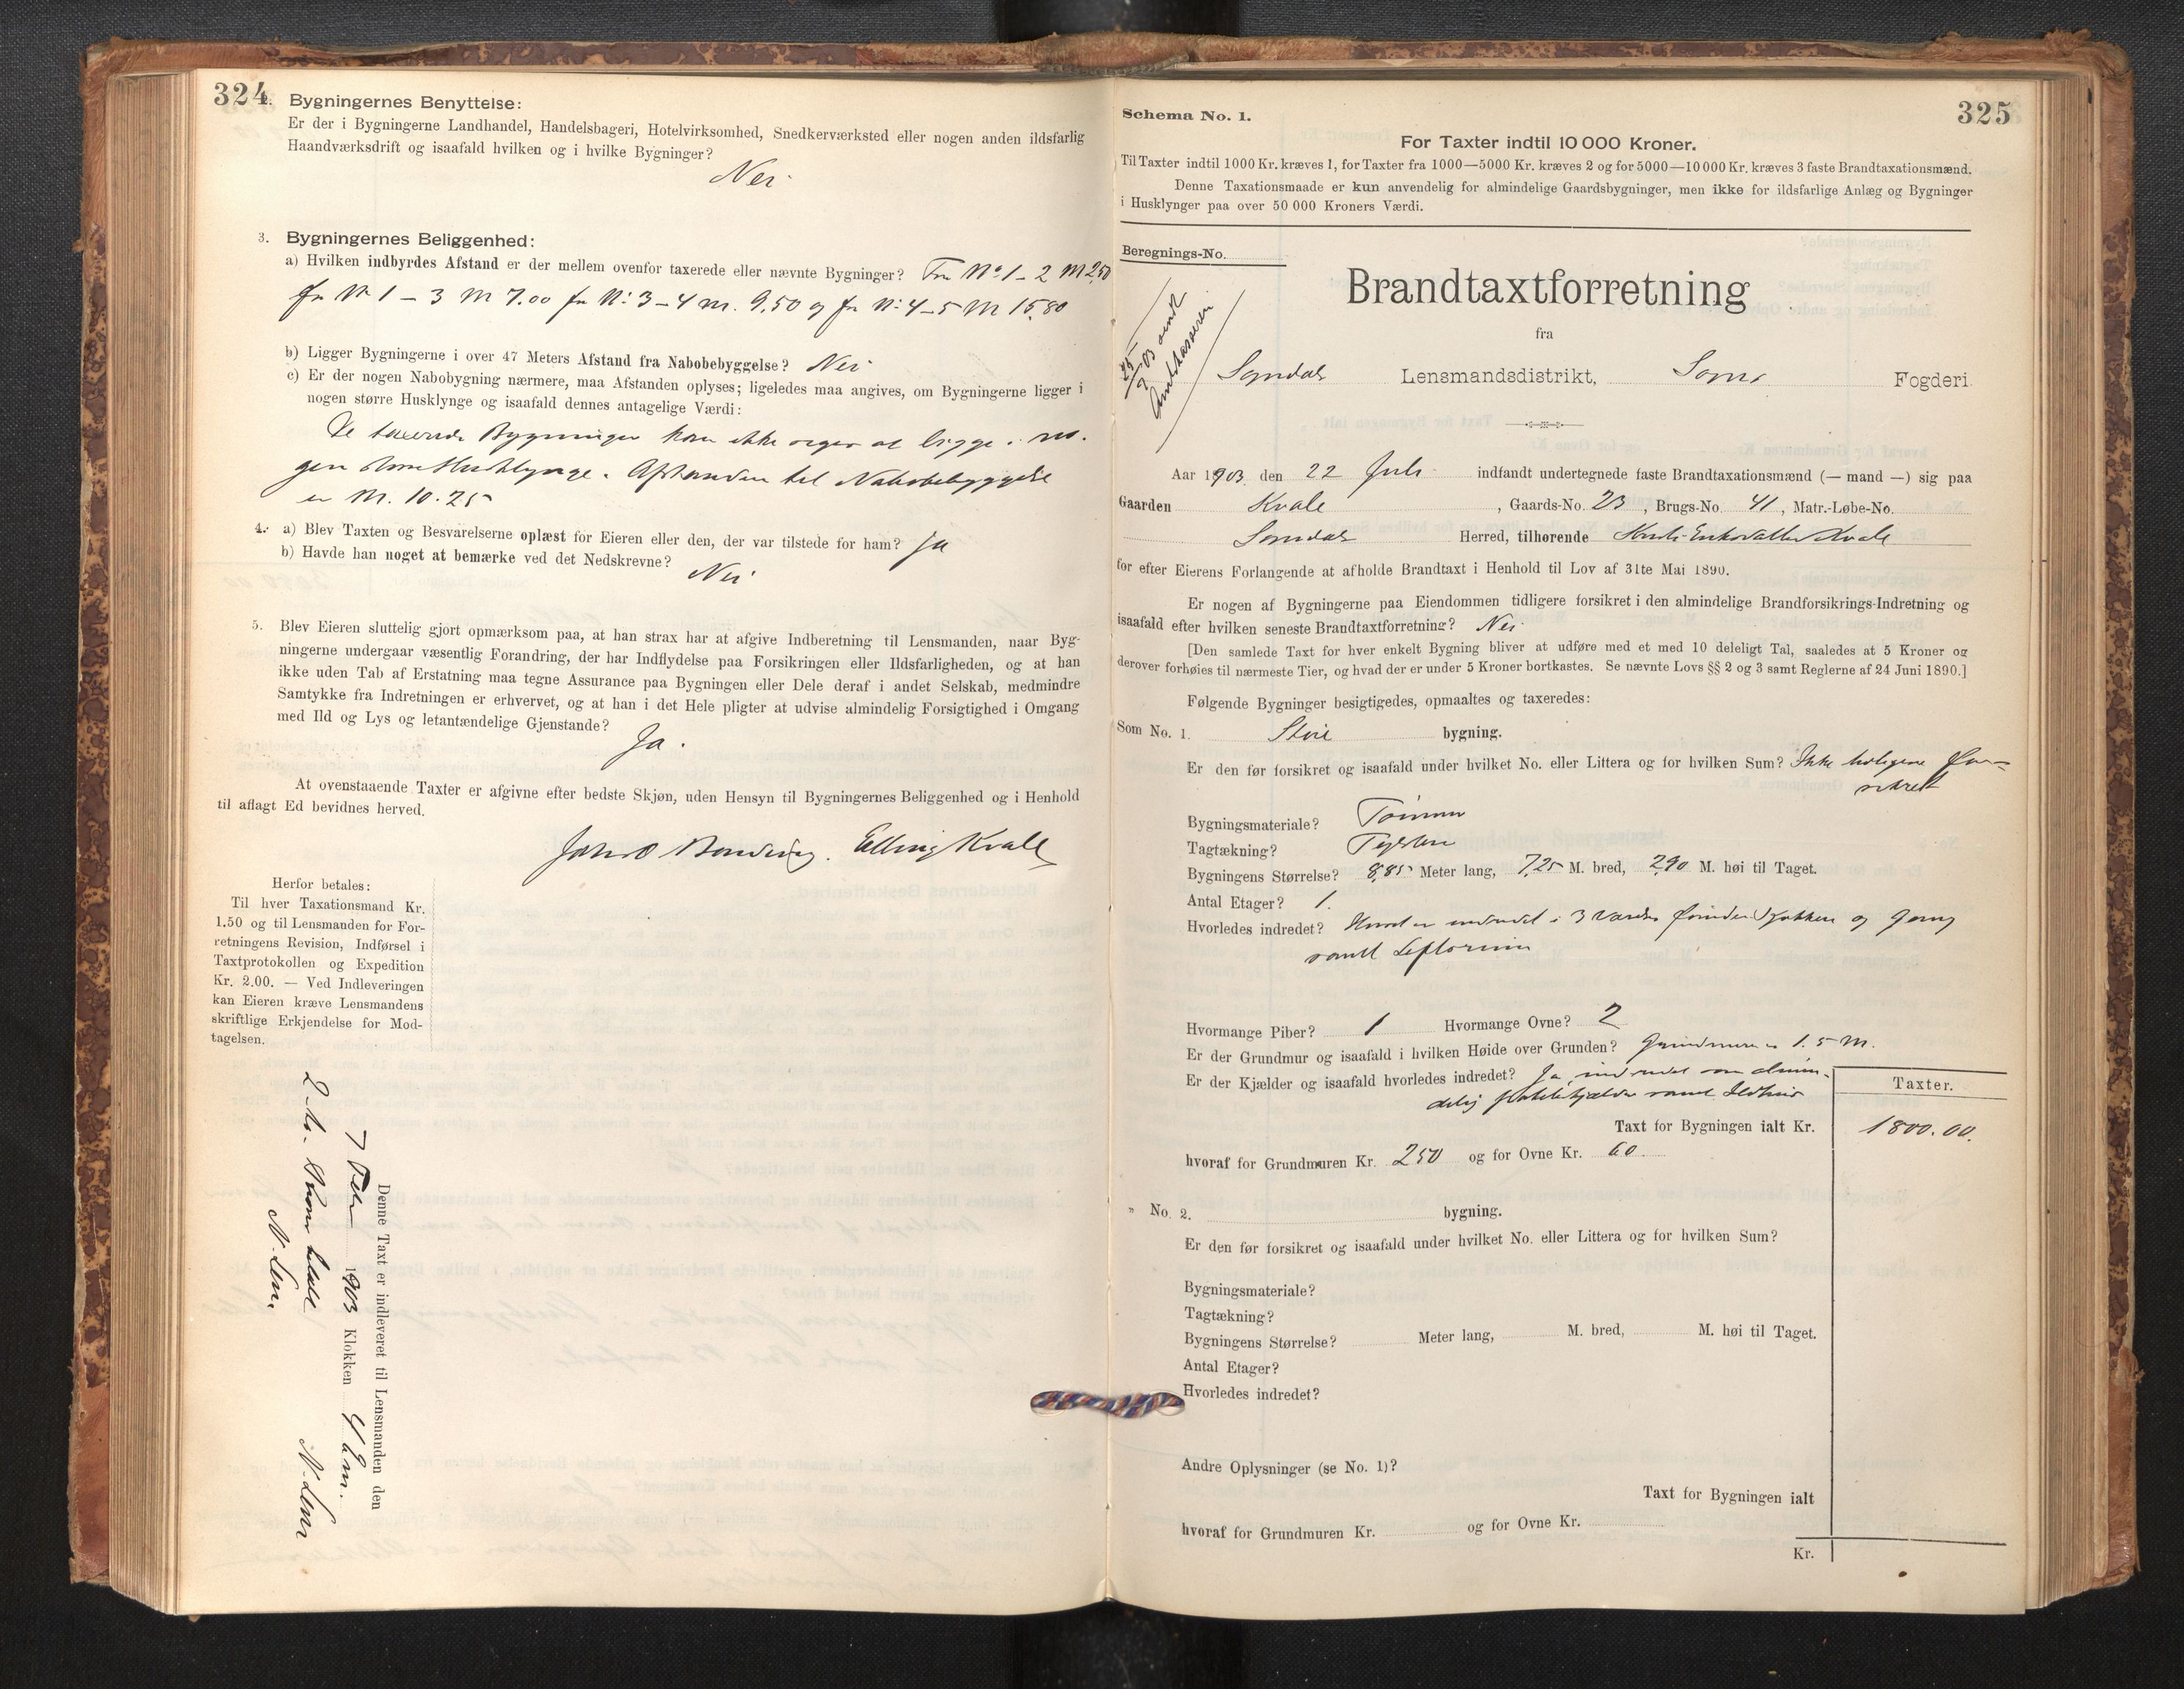 324.
Bygningernes Benyttelse:
Er der i Bygningerne Landhandel, Handelsbageri, Hotelvirksomhed, Snedkerværksted eller nogen anden ildsfarlig
Haandværksdrift og isaafald hvilken og i hvilke Bygninger?
Nei
3. Bygningernes Beliggenhed:
a) Hvilken indbyrdes Afstand er der mellem ovenfor taxerede eller nævnte Bygninger? Fra No 1 - 2 M 2,50
fra No 1 - 3 M 7.00 fra No 3-4 M. 9,50 og fra No 4-5 M 15,80
b) Ligger Bygningerne i over 47 Meters Afstand fra Nabobebyggelse? Nei
c) Er der nogen Nabobygning nærmere, maa Afstanden oplyses; ligeledes maa angives, om Bygningerne ligger i
nogen større Husklynge og isaafald dennes antagelige Værdi:
De taxerede Bygninger kan ikke siges at ligge i no-
gen større Husklynge. Afstanden til Nabobebyggelse
er M. 10.25
4. a) Blev Taxten og Besvarelserne oplæst for Eieren eller den, der var tilstede for ham? Ja
b) Havde han noget at bemærke ved det Nedskrevne?
Nei
5. Blev Eieren sluttelig gjort opmærksom paa, at han strax har at afgive Indberetning til Lensmanden, naar Byg-
ningerne undergaar væsentlig Forandring, der har Indflydelse paa Forsikringen eller Ildsfarligheden, og at han
ikke uden Tab af Erstatning maa tegne Assurance paa Bygningen eller Dele deraf i andet Selskab, medmindre
Samtykke fra Indretningen er erhvervet, og at han i det Hele pligter at udvise almindelig Forsigtighed i Omgang
med Ild og Lys og letantændelige Gjenstande?
Ja.
At ovenstaaende Taxter er afgivne efter bedste Skjøn, uden Hensyn til Bygningernes Beliggenhed og i Henhold
til aflagt Ed bevidnes herved.
Elling Kvale
Herfor betales:
Til hver Taxationsmand Kr.
1.50 og til Lensmanden for For-
retningens Revision, Indførsel i
Taxtprotokollen og Expedition
Kr. 2.00. — Ved Indleveringen
kan Eieren kræve Lensmandens
skriftlige Erkjendelse for Mod-
tagelsen.
Denne Taxt er indleveret til Lensmanden den
7 1903 Klokken 4 Em.
N. Lem
2 Kr. betalt
N. Lem
325
Schema No. 1.
For Taxter indtil 10 000 Kroner.
Til Taxter indtil 1000 Kr. kræves 1, for Taxter fra 1000—5000 Kr. kræves 2 og for 5000—10 000 Kr. kræves 3 faste Brandtaxationsmænd.
Denne Taxationsmaade er kun anvendelig for almindelige Gaardsbygninger, men ikke for ildsfarlige Anlæg og Bygninger
i Husklynger paa over 50 000 Kroners Værdi.
Beregnings-No.
03 sendt
Amtskassereren
Brandtaxtforretning
fra
Sogndals Lensmandsdistrikt, Sogns Fogderi.
Aar 1903 den 22 Juli indfandt undertegnede faste Brandtaxationsmænd (— mand —) sig paa
Gaarden Kvale, Gaards-No. 23, Brugs-No. 41, Matr.-Løbe-No.
Sogndals Herred, tilhørende Kvale
for efter Eierens Forlangende at afholde Brandtaxt i Henhold til Lov af 31te Mai 1890.
Er nogen af Bygningerne paa Eiendommen tidligere forsikret i den almindelige Brandforsikrings-Indretning og
isaafald efter hvilken seneste Brandtaxtforretning? Nei
[Den samlede Taxt for hver enkelt Bygning bliver at udføre med et med 10 deleligt Tal, saaledes at 5 Kroner og
derover forhøies til nærmeste Tier, og hvad der er under 5 Kroner bortkastes. Se nævnte Lovs §§ 2 og 3 samt Reglerne af 24 Juni 1890.]
Følgende Bygninger besigtigedes, opmaaltes og taxeredes:
Som No. 1. Stue bygning.
Er den før forsikret og isaafald under hvilket No. eller Littera og for hvilken Sum? Ikke tidligere for-
sikret
Bygningsmateriale? Tømmer
Tagtækning? Teglsten
Bygningens Størrelse? 8,85 Meter lang, 7,25 M. bred, 2,90 M. høi til Taget.
Antal Etager? 1.
Hvorledes indredet? Huset er indredet i 3 Værelser Kjøkken og Gang
samt
Hvormange Piber? 1 Hvormange Ovne? 2
Er der Grundmur og isaafald i hvilken Høide over Grunden? Grundmuren er 1.5 M.
Er der Kjælder og isaafald hvorledes indredet? Ja, indredet som almin-
delig Potetkjælder samt Ildhus
Taxter.
Taxt for Bygningen ialt Kr. 1800.00.
hvoraf for Grundmuren Kr. 250 og for Ovne Kr. 60.
" No. 2. bygning.
Er den før forsikret og isaafald under hvilket No. eller Littera og for hvilken Sum?
Bygningsmateriale?
Tagtækning?
Bygningens Størrelse? Meter lang, M. bred, M. høi til Taget.
Antal Etager?
Hvorledes indredet?
Andre Oplysninger (se No. 1)?
Taxt for Bygningen ialt
hvoraf for Grundmuren Kr. og for Ovne Kr.
Kr.